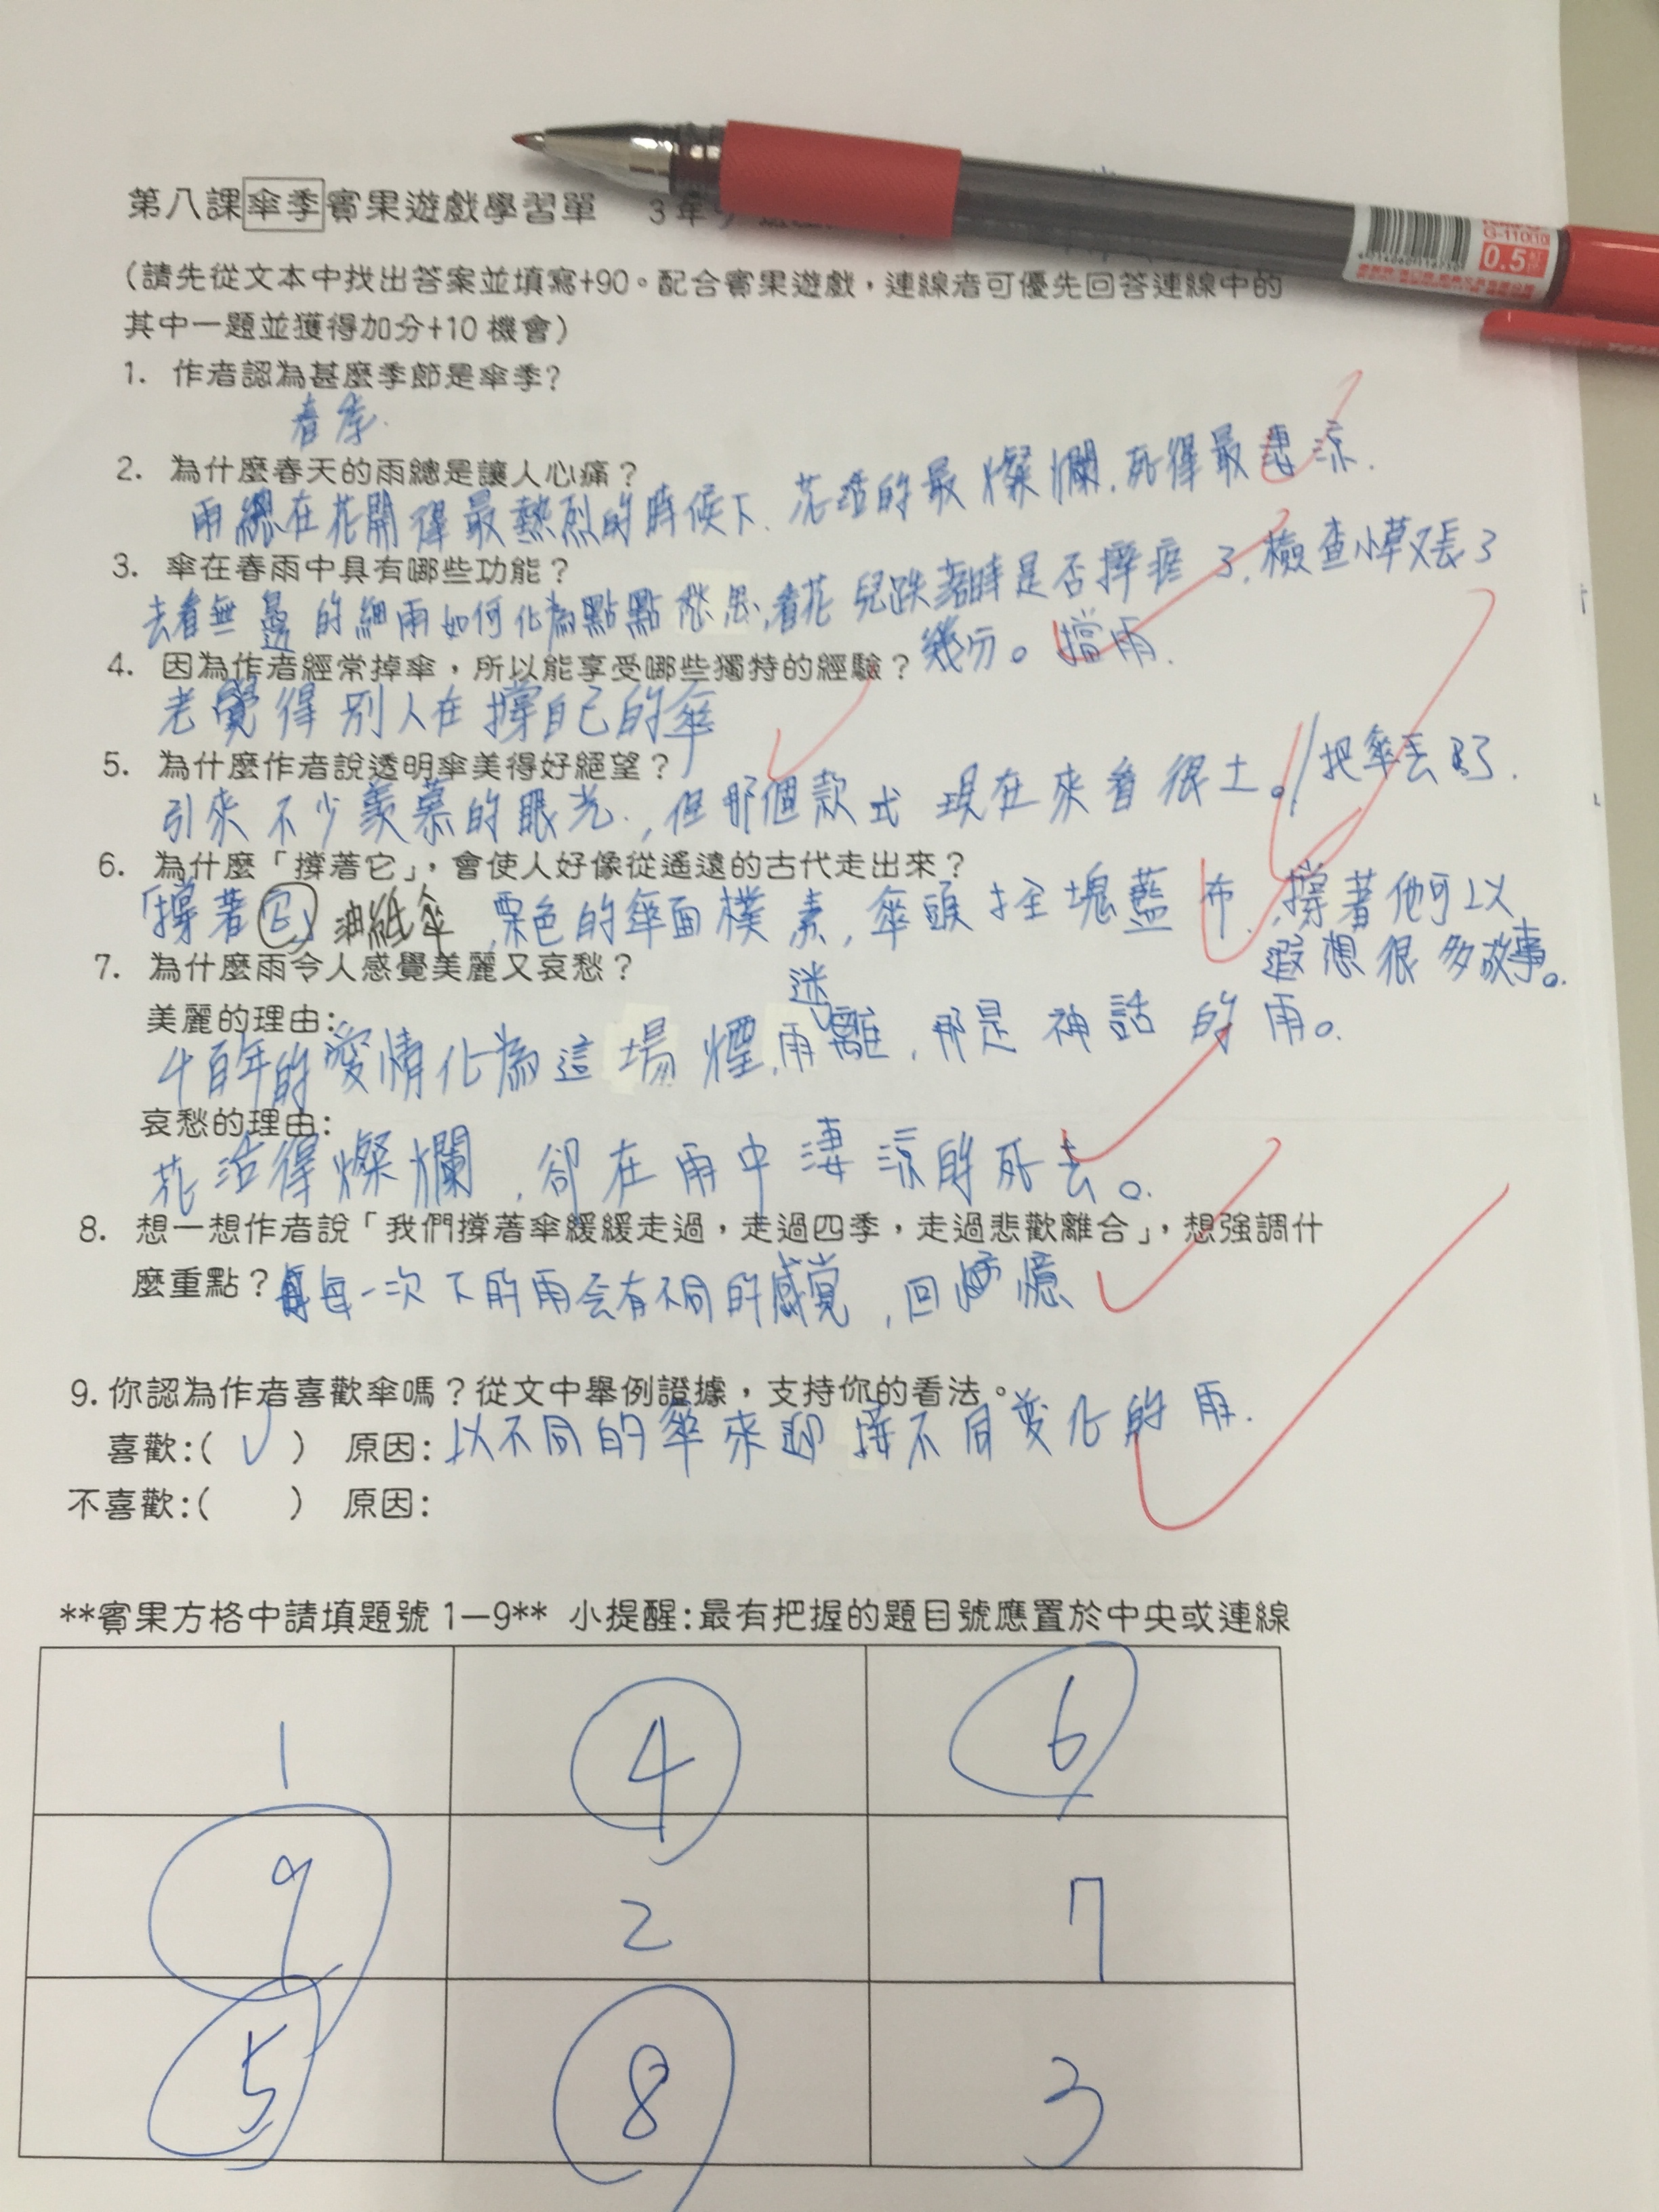 第八課傘季賓果遊戲學習單 3年9
G-110(10)
0.5
(請先從文本中找出答案並填寫+90。配合賓果遊戲，連線者可優先回答連線中的
其中一題並獲得加分+10 機會)
1. 作者認為甚麼季節是傘季?
春季.
2. 為什麼春天的雨總是讓人心痛？
雨總在花開得最熱烈的時候下. 花活的最燦爛.死得最淒涼.
3. 傘在春雨中具有哪些功能？
去看無邊的細雨如何化為點點愁思,看花兒跌落時是否摔疼了.檢查小草又長了
幾分。擋雨.
4. 因為作者經常掉傘，所以能享受哪些獨特的經驗？
老覺得別人在撐自己的傘
5. 為什麼作者說透明傘美得好絕望？
引來不少羨慕的眼光.,但那個款式現在來看很土。/把傘丟了.
6. 為什麼「撐著它」，會使人好像從遙遠的古代走出來？
「撐著它」油紙傘,栗色的傘面樸素,傘頭拴塊藍布.,撐著他可以
遐想很多故事。
7. 為什麼雨令人感覺美麗又哀愁？
美麗的理由:
千百年的愛情化為這場煙.雨迷離,那是神話的雨。
哀愁的理由:
花活得燦爛,卻在雨中淒涼的死去。
8. 想一想作者說「我們撐著傘緩緩走過，走過四季，走過悲歡離合」，想強調什
麼重點？每一次下的雨会有不同的感覚,回憶
9.你認為作者喜歡傘嗎？從文中舉例證據，支持你的看法。
喜歡:( ✓ ) 原因:以不同的傘來迎接不同变化的雨.
不喜歡:( ) 原因:
**賓果方格中請填題號 1—9** 小提醒:最有把握的題目號應置於中央或連線
1 4 6
9 2 7
5 8 3